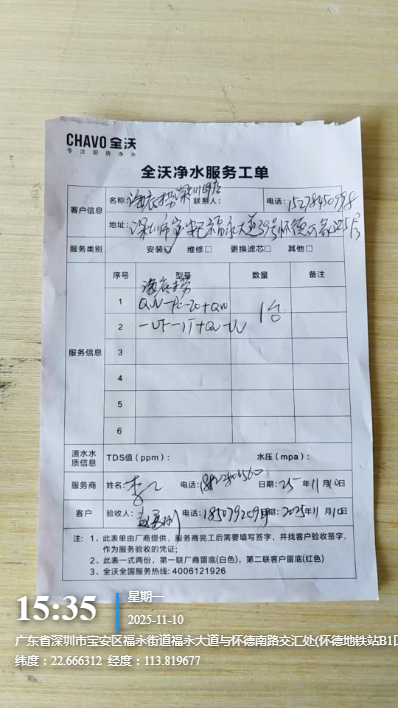 CHAVO 全沃
专注厨房净水
全沃净水服务工单
客户信息
名称: 海底捞深圳 联系人: 电话:
地址: 深圳市宝安区福永大道
服务类别 安装□ 维修□ 更换滤芯□ 其他□
服务信息
序号 型号 数量 备注
1 海底捞
1台
2
3
4
5
6
源水水质信息 TDS值(ppm): 水压(mpa):
服务商 姓名: 李 电话: 日期: 25年11月10日
客户 验收人: 电话: 日期: 2025年11月10日
注: 1、此表单由厂商提供,服务商完工后需要填写签字,并找客户验收签字,
作为服务验收的凭证;
2、此表一式两份,第一联厂商留底(白色),第二联客户留底(红色)
3、全沃全国服务热线: 4006121926
15:35
星期一
2025-11-10
广东省深圳市宝安区福永街道福永大道与怀德南路交汇处(怀德地铁站B1
纬度:22.666312 经度:113.819677